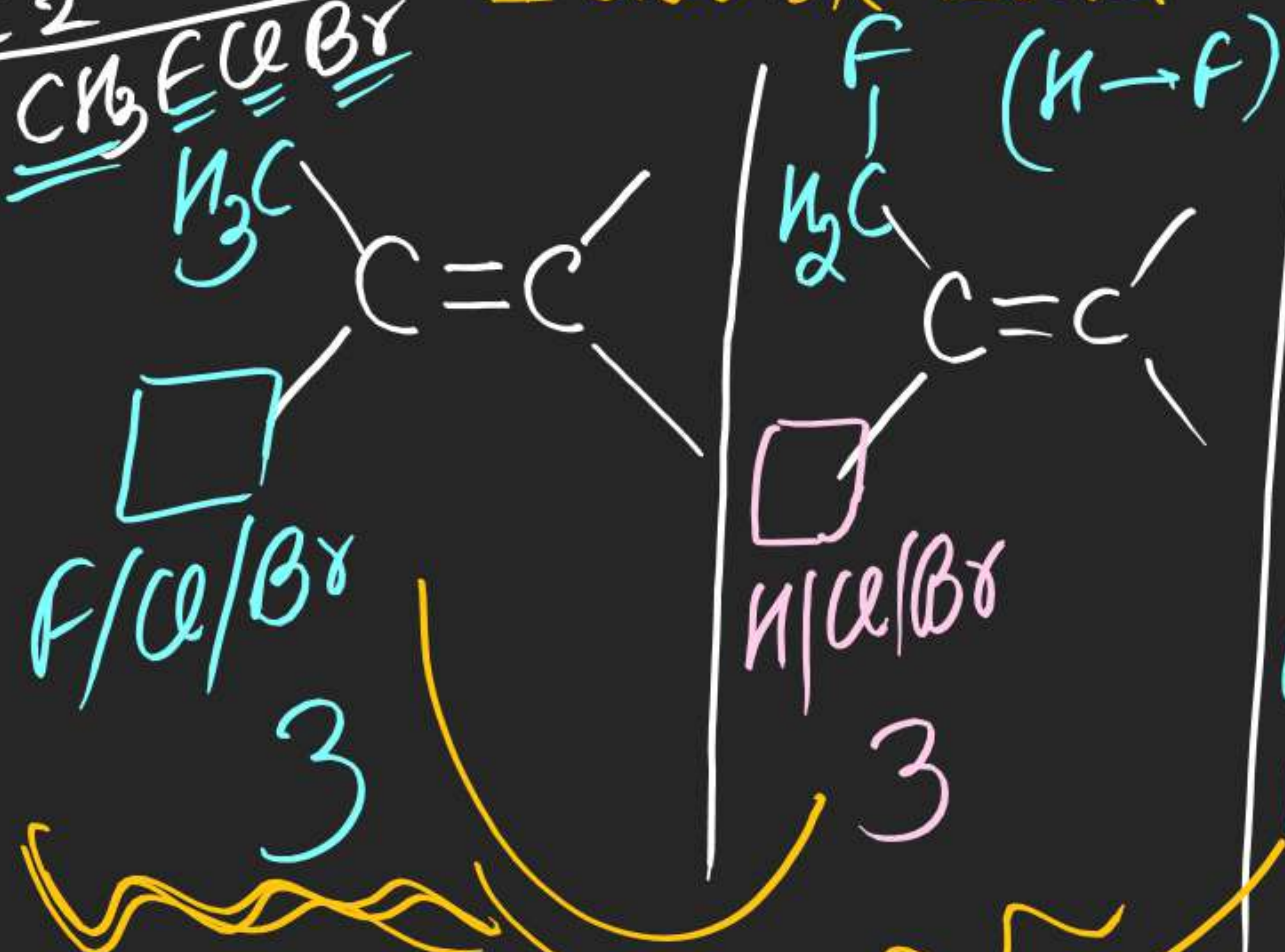 2
CH3 F Cl Br
H3C
C = C
F/Cl/Br
3
F
(H → F)
H2C
C = C
H/Cl/Br
3